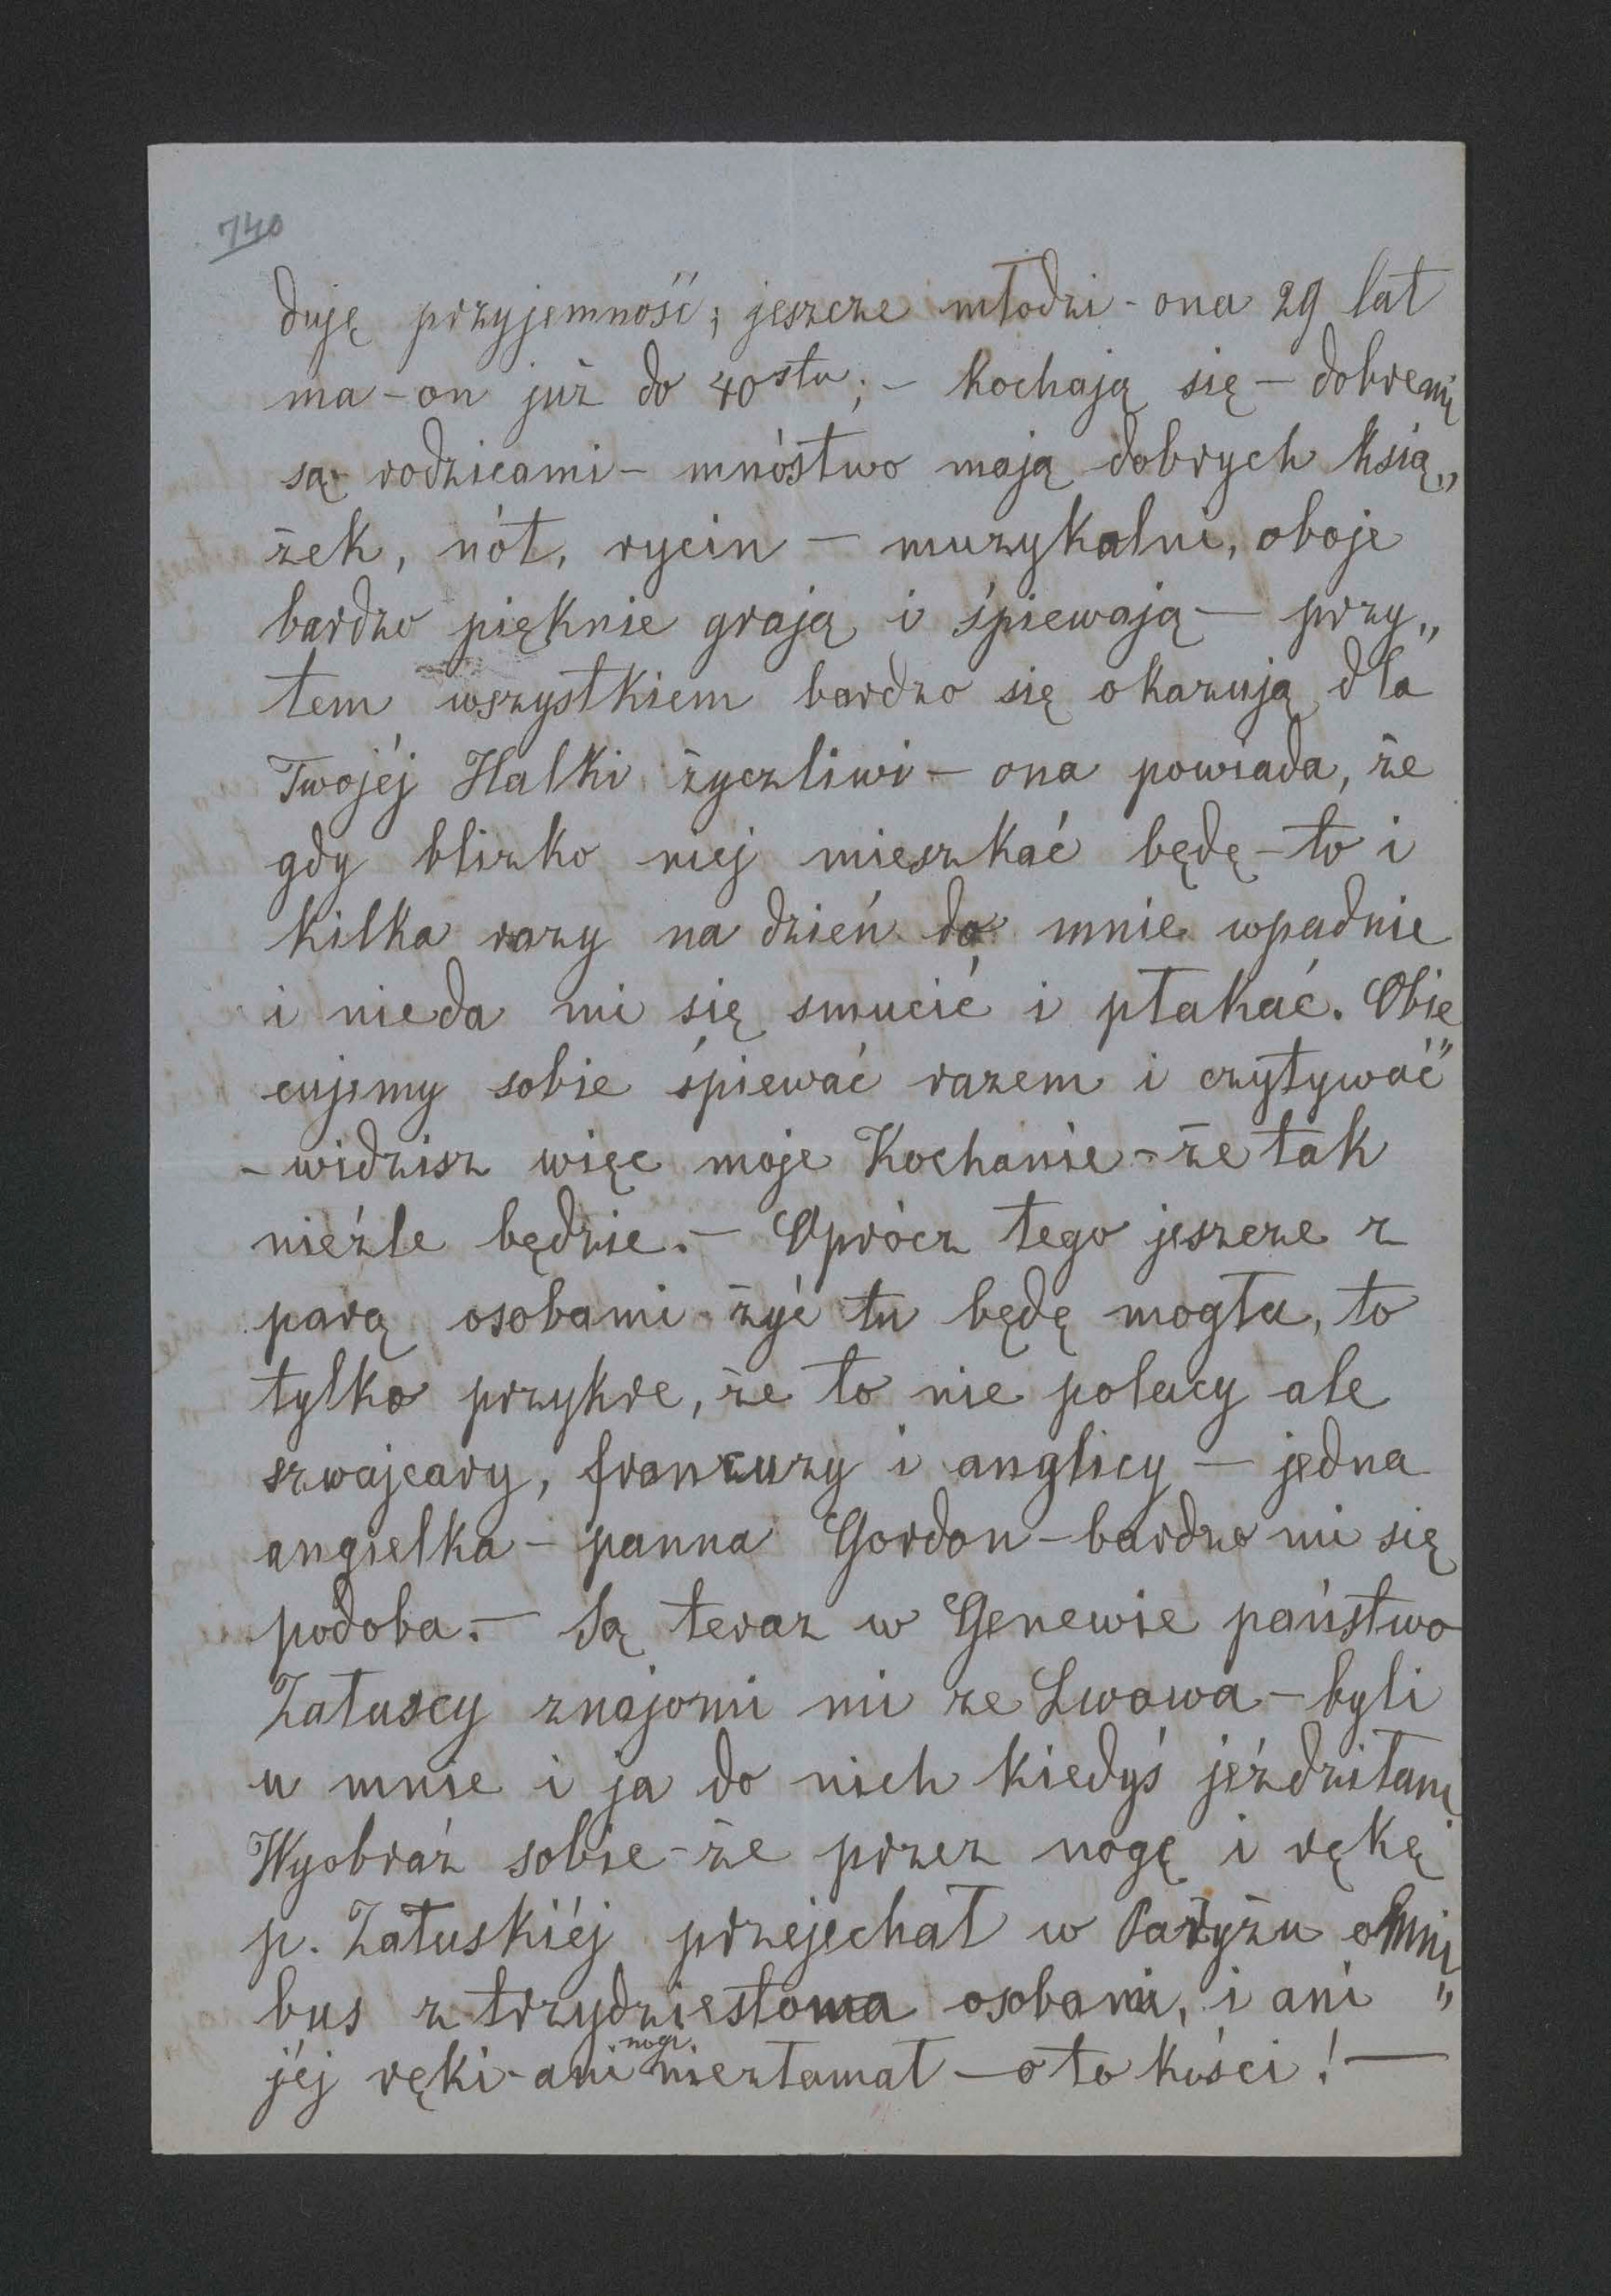 740
duję przyjemność; jeszcze młodzi - ona 29 lat
ma - on już do 40stu; - kochają się - dobremi
są rodzicami - mnóstwo mają dobrych ksią„
żek, nót, rycin - muzykalni, oboje
bardzo pięknie grają i śpiewają - przy„
tem wszystkiem bardzo się okazują dla
Twojéj Halki życzliwi - ona powiada, że
gdy blizko niej mieszkać będę - to i
kilka razy na dzień do mnie wpadnie
i nieda mi się smucić i płakać. Obie„
cujemy sobie śpiewać razem i czytywać
- widzisz więc moje Kochanie - że tak
nieźle będzie. - Oprócz tego jeszcze z
parą osobami żyć tu będę mogła, to
tylko przykre, że to nie polacy ale
szwajcary, francuzy i anglicy - jedna
angielka - panna Gordon - bardzo mi się
podoba. - Są teraz w Genewie państwo
Załuscy znajomi mi ze Lwowa - byli
u mnie i ja do nich kiedyś jeździłam
Wyobraź sobie - że przez nogę i rękę
p. Załuskiéj przejechał w Paryżu omni„
bus z trzydziestoma osobami, i ani
jéj ręki - ani nogi niezłamał - oto kości! -